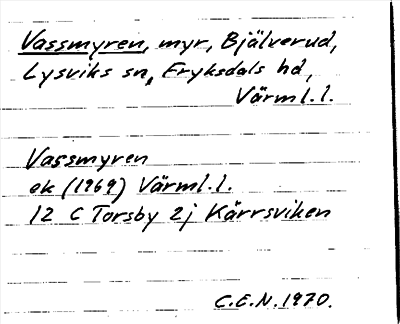 Vassmyren, myr, Bjälverud,
Lysviks sn, Fryksdals hd,
Värml.l.
Vassmyren
ek (1969) Värml.l.
12 C Torsby 2j Kärrsviken
C.E.N. 1970.